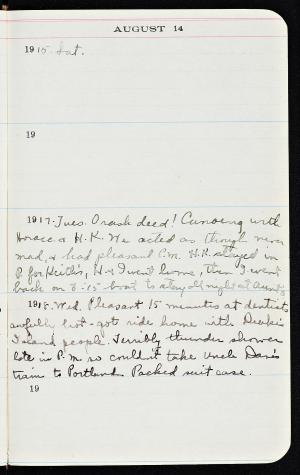 AUGUST 14
1915. Sat.
19
1917. Tues. O rash deed! Canoeing with
Horace & H.K. We acted as though never
mad, & had pleasant P.M. H.K. stayed in
P. for Keith's, H & I went home, then I went
back on 8-15 boat to stay all night at Aunt's
1918. Wed. Pleasant 15 minutes at dentist's
awfully hot - got ride home with
Island people. Terribly thunder shower
late in P.M. so couldn't take Uncle Dan's
train to Portland. Packed suit case.
19